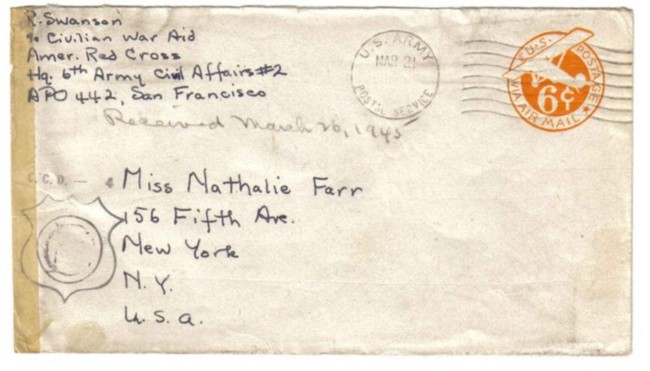 R. Swanson
℅ Civilian War Aid
Amer. Red Cross
Hq. 6th Army Civil Affairs #2
APO 442, San Francisco
U.S. ARMY
MAR 21
POSTAL SERVICE
U.S. POSTAGE
6¢
VIA AIR MAIL
Received March 26, 1945
C.C.D. —
Miss Nathalie Farr
156 Fifth Ave.
New York
N.Y.
U.S.A.